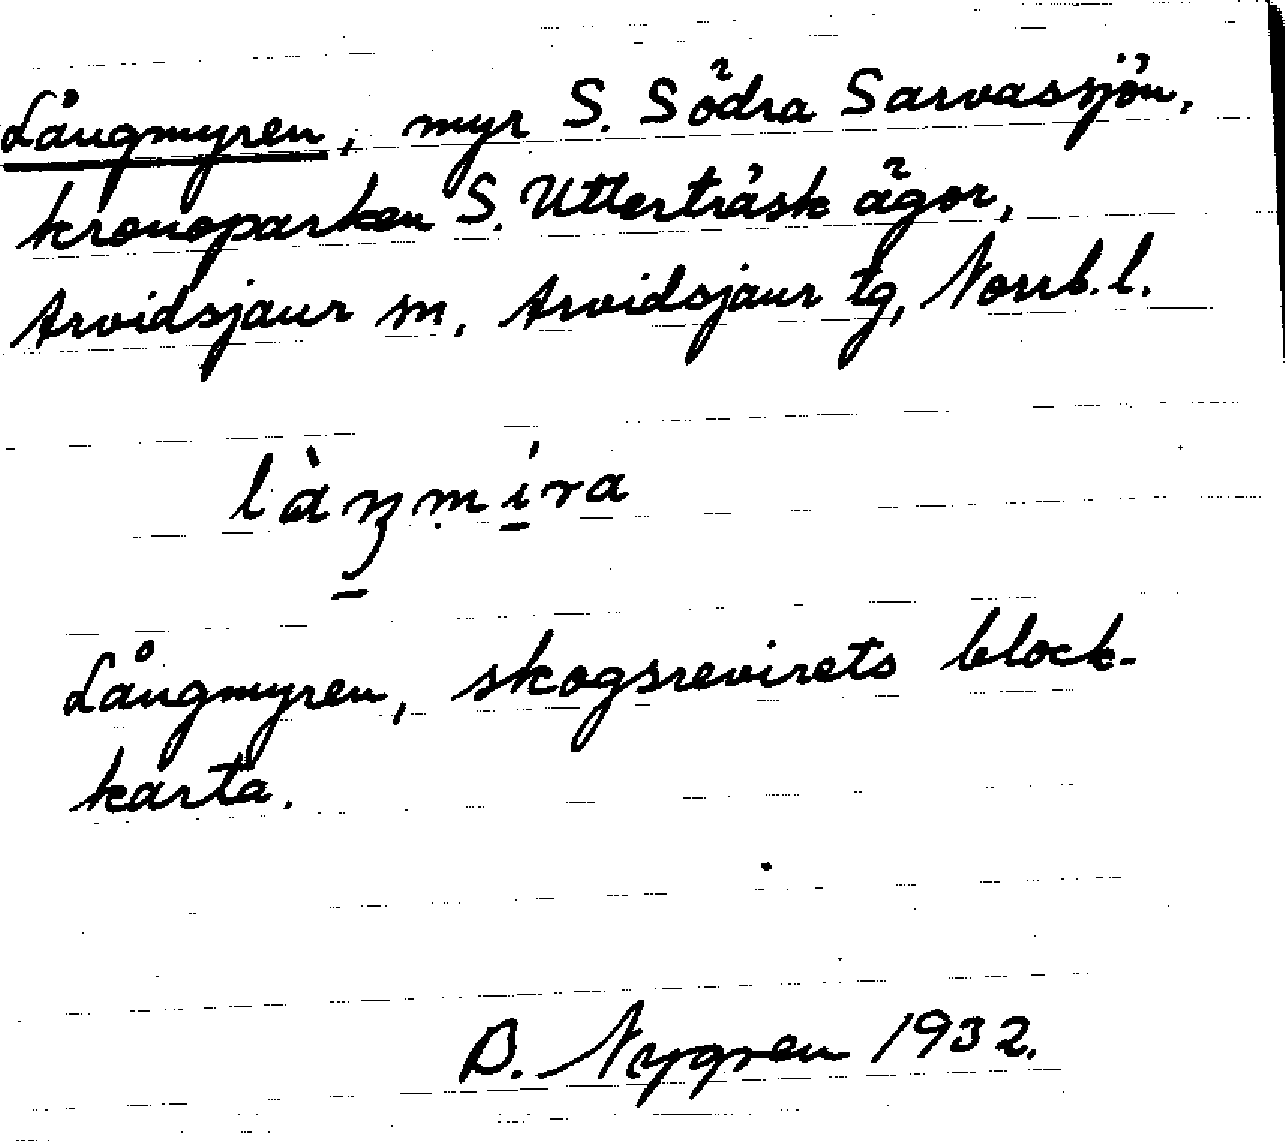 Långmyren, myr S. Södra Sarvasjön,
kronoparken S. Utterträsk ägor,
Arvidsjaur sn. Arvidsjaur tg, Norrb. l.
Långmyren, skogsrevirets block-
karta.
B. Nygren 1932.